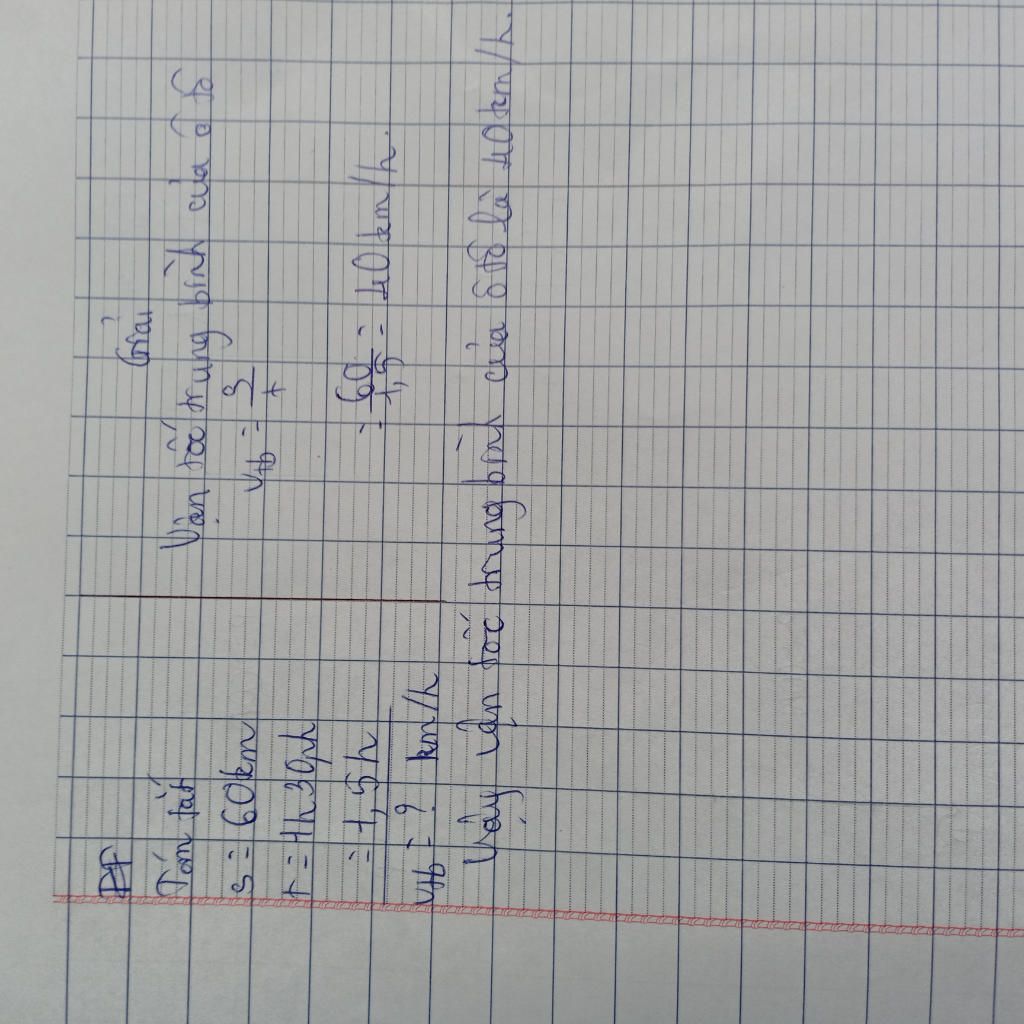 Tóm tắt
s = 60km
t = 1h30ph
= 1,5h
vtb = ? km/h
Giải
Vận tốc trung bình của ô tô
vtb = s/t
= 60/1,5 = 40km/h.
Vậy vận tốc trung bình của ô tô là 40km/h.